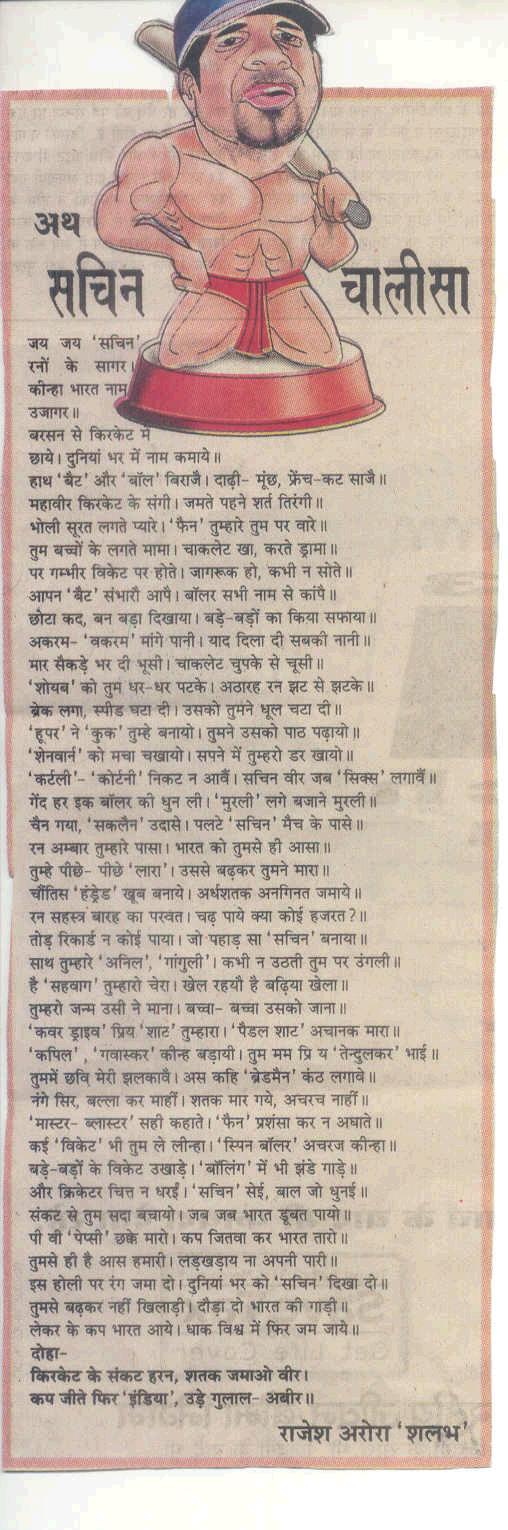 अथ
सचिन चालीसा
जय जय ‘सचिन’
रनों के सागर।
कीन्हा भारत नाम
उजागर॥
बरसन से किरकेट में
छाये। दुनियां भर में नाम कमाये॥
हाथ ‘बैट’ और ‘बॉल’ बिराजै। दाढ़ी- मूंछ, फ्रेंच-कट साजै॥
महावीर किरकेट के संगी। जमते पहने शर्त तिरंगी॥
भोली सूरत लगते प्यारे। ‘फैन’ तुम्हारे तुम पर वारे॥
तुम बच्चों के लगते मामा। चाकलेट खा, करते ड्रामा॥
पर गम्भीर विकेट पर होते। जागरूक हो, कभी न सोते॥
आपन ‘बैट’ संभारौ आपै। बॉलर सभी नाम से कांपै॥
छोटा कद, बन बड़ा दिखाया। बड़े-बड़ों का किया सफाया॥
अकरम- ‘वकरम’ मांगे पानी। याद दिला दी सबकी नानी॥
मार सैकड़े भर दी भूसी। चाकलेट चुपके से चूसी॥
‘शोयब’ को तुम धर-धर पटके। अठारह रन झट से झटके॥
ब्रेक लगा, स्पीड घटा दी। उसको तुमने धूल चटा दी॥
‘हूपर’ ने ‘कुक’ तुम्हे बनायो। तुमने उसको पाठ पढ़ायो॥
‘शेनवार्न’ को मचा चखायो। सपने में तुम्हरो डर खायो॥
‘कर्टली’- ‘कोर्टनी’ निकट न आवैं। सचिन वीर जब ‘सिक्स’ लगावैं॥
गेंद हर इक बॉलर की धुन ली। ‘मुरली’ लगे बजाने मुरली॥
चैन गया, ‘सकलैन’ उदासे। पलटे ‘सचिन’ मैच के पासे॥
रन अम्बार तुम्हारे पासा। भारत को तुमसे ही आसा॥
तुम्हे पीछे- पीछे ‘लारा’। उससे बढ़कर तुमने मारा॥
चौंतिस ‘हंड्रेड’ खूब बनाये। अर्धशतक अनगिनत जमाये॥
रन सहस्त्र बारह का परवत। चढ़ पाये क्या कोई हजरत?॥
तोड़ रिकार्ड न कोई पाया। जो पहाड़ सा ‘सचिन’ बनाया॥
साथ तुम्हारे ‘अनिल’, ‘गांगुली’। कभी न उठती तुम पर उंगली॥
है ‘सहवाग’ तुम्हारो चेरा। खेल रहयौ है बढ़िया खेला॥
तुम्हरो जन्म उसी ने माना। बच्चा- बच्चा उसको जाना॥
‘कवर ड्राइव’ प्रिय ‘शाट’ तुम्हारा। ‘पैडल शाट’ अचानक मारा॥
‘कपिल’ , ‘गवास्कर’ कीन्ह बड़ायी। तुम मम प्रि य ‘तेन्दुलकर’ भाई॥
तुममें छवि मेरी झलकावै। अस कहि ‘ब्रेडमैन’ कंठ लगावे॥
नंगे सिर, बल्ला कर माहीं। शतक मार गये, अचरच नाहीं॥
‘मास्टर- ब्लास्टर’ सही कहाते। ‘फैन’ प्रशंसा कर न अघाते॥
कई ‘विकेट’ भी तुम ले लीन्हा। ‘स्पिन बॉलर’ अचरज कीन्हा॥
बड़े-बड़ों के विकेट उखाड़े। ‘बॉलिंग’ में भी झंडे गाड़े॥
और क्रिकेटर चित्त न धरईं। ‘सचिन’ सेई, बाल जो धुनई॥
संकट से तुम सदा बचायो। जब जब भारत डूबत पायो॥
पी वी ‘पेप्सी’ छक्के मारो। कप जितवा कर भारत तारो॥
तुमसे ही है आस हमारी। लड़खड़ाय ना अपनी पारी॥
इस होली पर रंग जमा दो। दुनियां भर को ‘सचिन’ दिखा दो॥
तुमसे बढ़कर नहीं खिलाड़ी। दौड़ा दो भारत की गाड़ी॥
लेकर के कप भारत आये। धाक विश्व में फिर जम जाये॥
दोहा-
किरकेट के संकट हरन, शतक जमाओ वीर।
कप जीते फिर ‘इंडिया’, उड़े गुलाल- अबीर॥
राजेश अरोरा ‘शलभ’